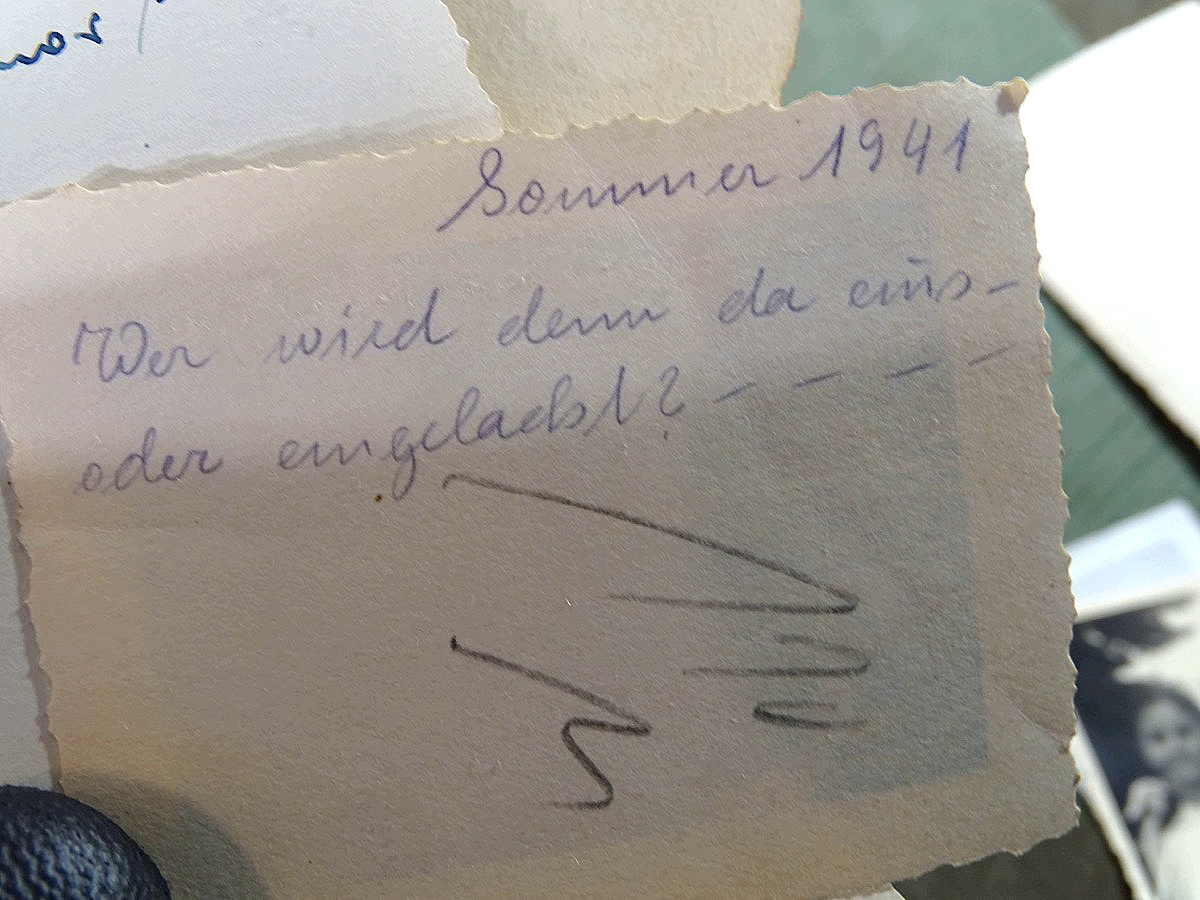 Sommer 1941
Wer wird denn da aus-
oder eingelacht? – – – –